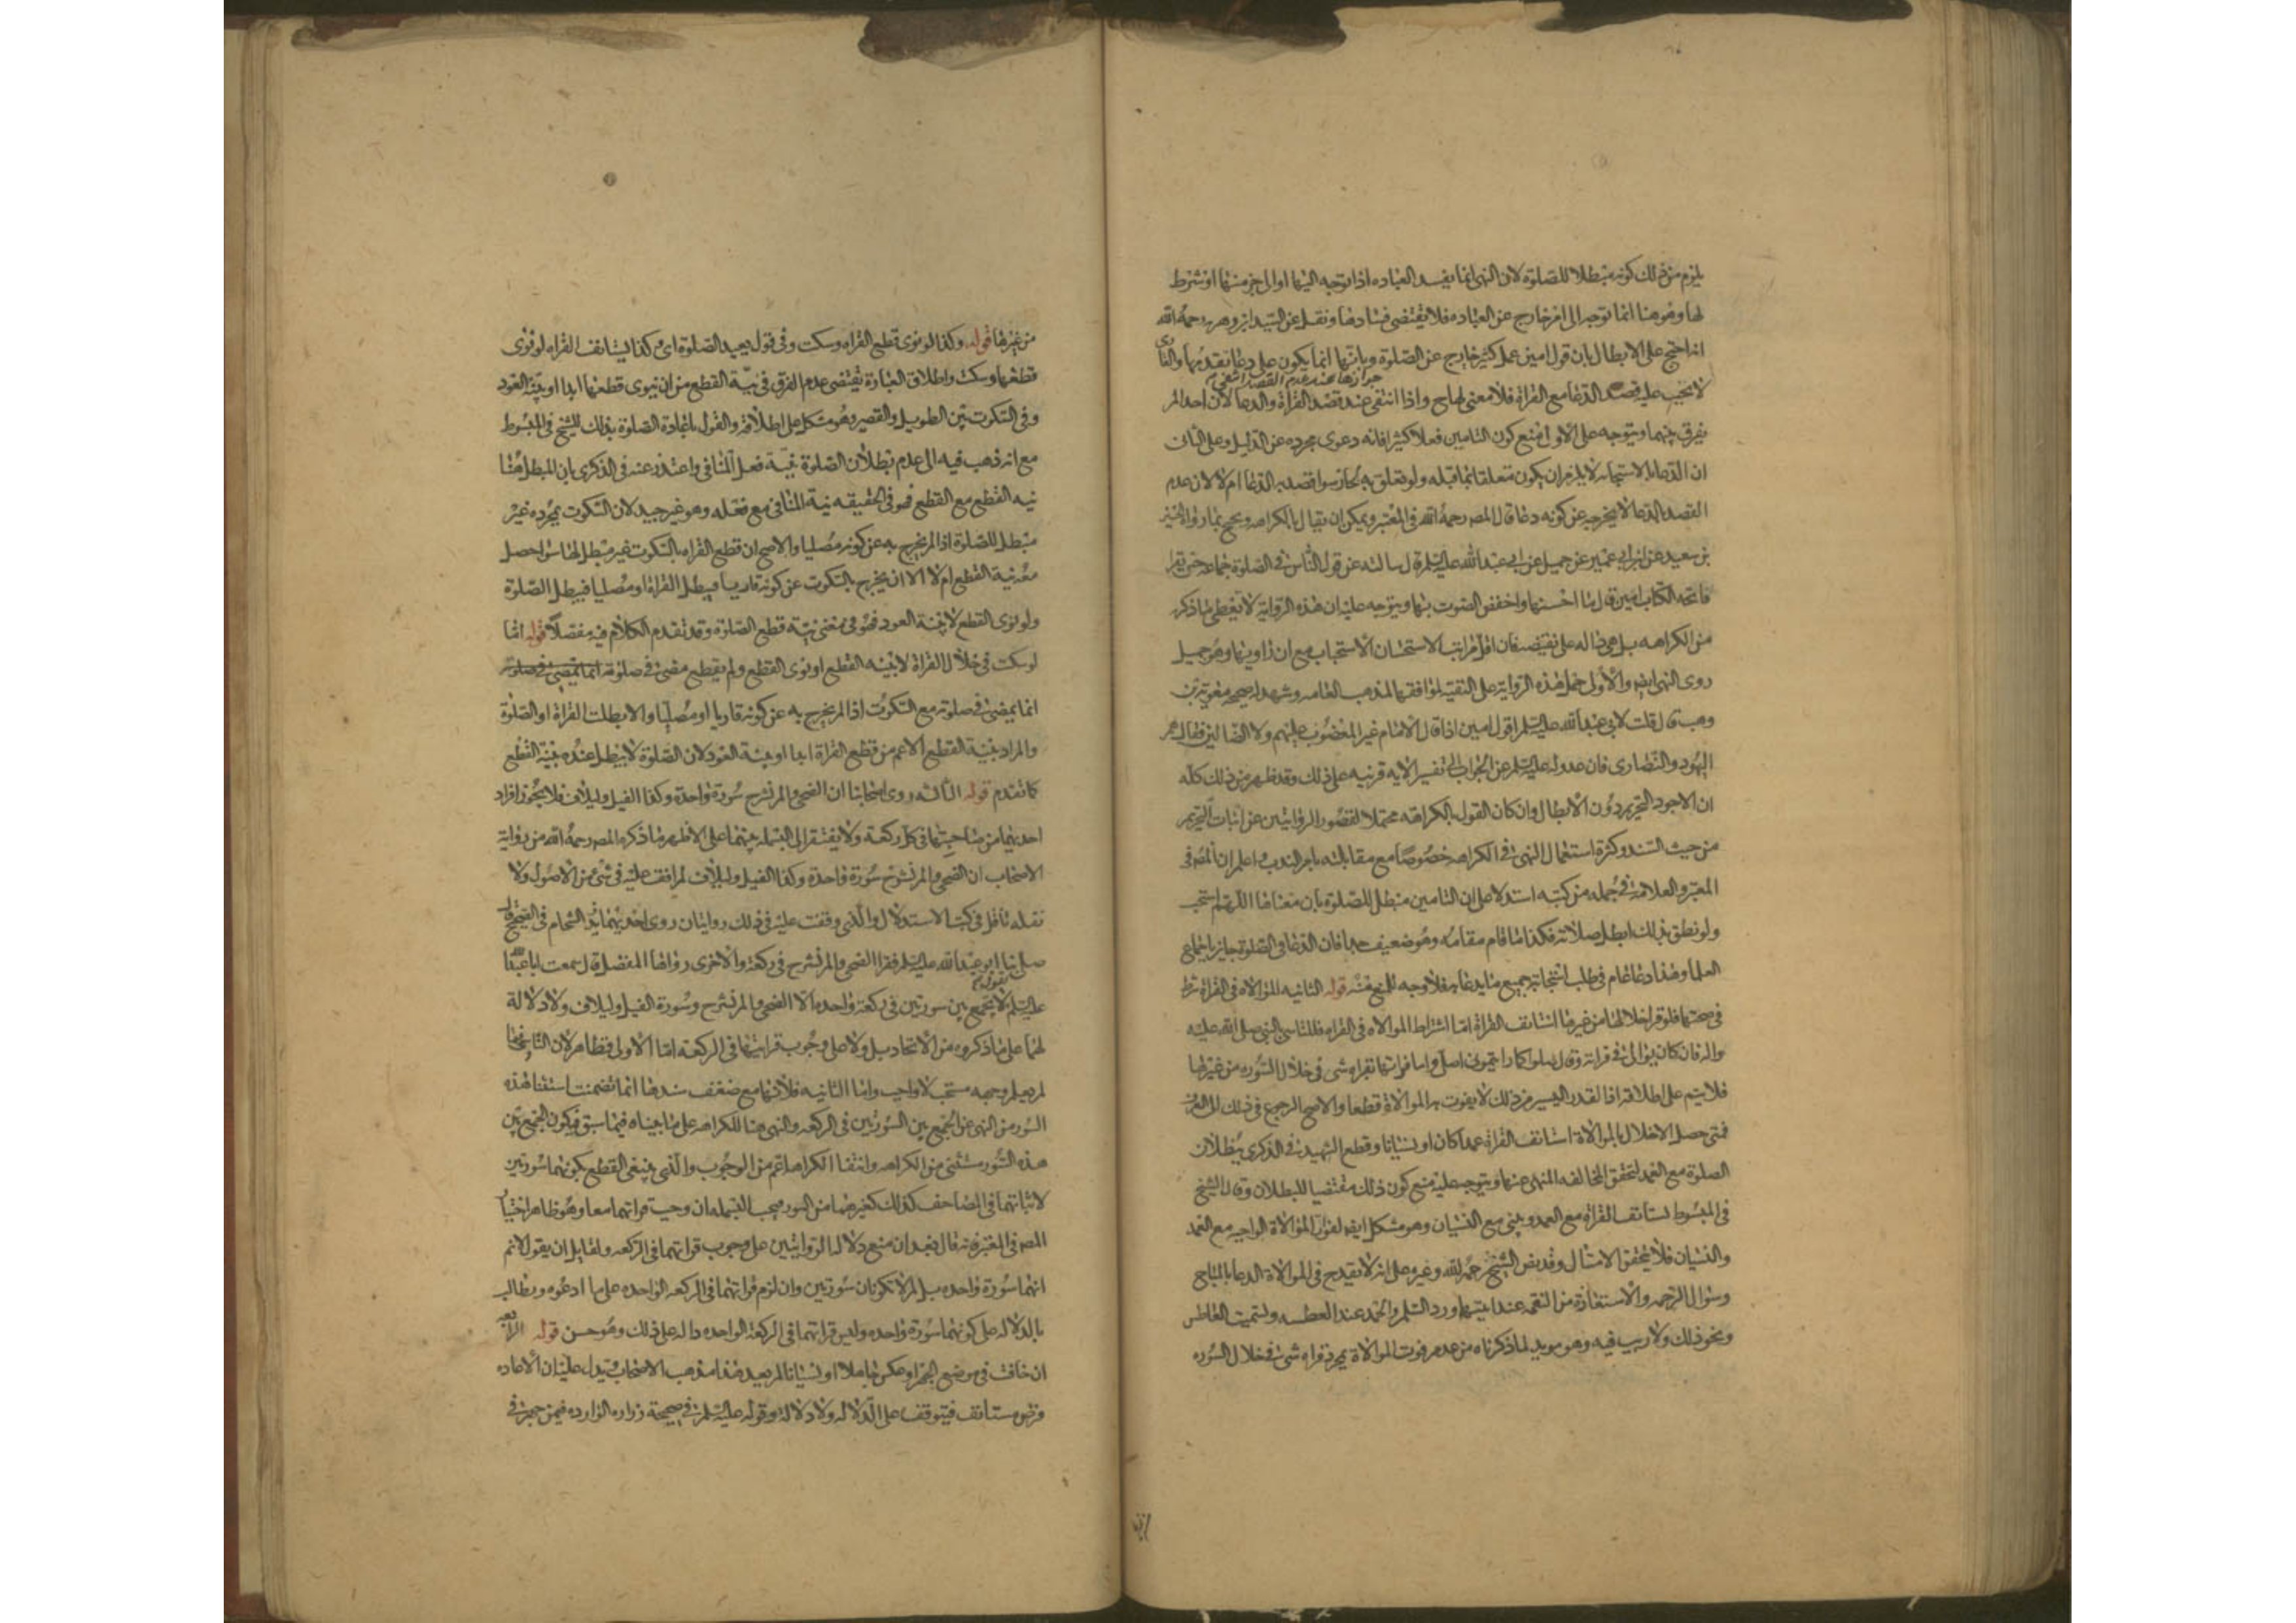 يلزم من ذلك كونه مبطلا للصلوة لان النهى انما يفسد العباده اذا توجه اليها او الى جزء منها او شرط
لها وهو هنا انما توجه الى امر خارج عن العباده فلا يقتضى فسادها ونقل عن السيد ابن زهره رحمه الله
انه احتج على الابطال بان قول امين عمل كثير خارج عن الصلوة وبانها انما يكون على دعا تقدمها والقارى
لا يجب عليه قصد الدعا مع القراة فلا معنى لها ح واذا انتفى عند قصد القراة والدعا لان احدا لم
جوازها عند عدم القصد انتفى
يفرق بينهما ويتوجه على الاول منع كون التامين فعلا كثيرا فانه دعوى مجرده عن الدليل وعلى الثانى
ان الدعا بالاستجابه لا يلزم ان يكون متعلقا بما قبله ولو تعلق به لجاز سوا قصد به الدعا ام لا لان عدم
القصد بالدعا لا يخرجه عن كونه دعا قال المصه رحمه الله فى المعتبر ويمكن ان يقال بالكراهه ويحتج بما رواه الحسين
بن سعيد عن ابن ابى عمير عن جميل عن ابى عبد الله عليه السلم قال سالته عن قول الناس فى الصلوة جماعه حين يقرا
فاتحه الكتاب امين قال ما احسنها واخفض الصوت بها ويتوجه عليه ان هذه الرواية لا تعطى ما ذكره
من الكراهه بل هى داله على نقيضه فان اقل مراتب الاستحسان الاستحباب مع ان راويها وهو جميل
روى النهى ايضا والاولى حمل هذه الرواية على التقية لموافقتها لمذهب العامه وشهد له صحيحه معوية بن
وهب قال قلت لابى عبد الله عليه السلم اقول امين اذا قال الامام غير المغضوب عليهم ولا الضالين فقال هم
اليهود والنصارى فان عدوله عليه السلم عن الجواب الى تفسير الايه قرنيه على ذلك وقد ظهر من ذلك كله
ان الاجود التحريم دون الابطال وان كان القول بالكراهه محتملا لقصور الروايتين عن اثبات التحريم
من حيث السند وكثرة استعمال النهى فى الكراهه خصوصا مع مقابلته بامر الندب واعلم ان المصه فى
المعتبر والعلامه فى جمله من كتبه استدلا على ان التامين مبطل للصلوة بان معناها اللهم استجب
ولو نطق بذلك ابطل صلاته فكذا ما قام مقامه وهو ضعيف جدا فان الدعا فى الصلوة جايز باجماع
العلما وهذا دعا عام فى طلب استجابة جميع ما يدعا به فلا وجه للمنع منه قوله الثانيه الموالاه فى القراة شرط
فى صحتها فلو قرا خلالها من غيرها استانف القراة اما اشتراط الموالاه فى القراه فللتاسى بالنبى صلى الله عليه
واله فانه كان يوالى فى قراته وقال صلوا كما رايتمونى اصلى واما فواتها بقراه شى فى خلال السوره من غيرها
فلا يتم على اطلاقه اذ القدر اليسير من ذلك لا يفوت به الموالاة قطعا والاصح الرجوع فى ذلك الى العرف
فمتى حصل الاخلال بالموالاة استانف القراة عمدا كان او نسيانا وقطع الشهيد فى الذكرى ببطلان
الصلوة مع العمد لتحقق المخالفه المنهى عنها ويتوجه عليه منع كون ذلك مقتضيا للبطلان وقال الشيخ
فى المبسوط يستانف القراة مع العمد ويبنى مع النسيان وهو مشكل ايضا لفوات الموالاة الواجبه مع العمد
والنسيان فلا يتحقق الامتثال وقد نص الشيخ رحمه الله وغيره على انه لا يقدح فى الموالاة الدعا بالمباح
وسؤال الرحمه والاستعاذة من النقمه عند ايتيهما ورد السلم والحمد عند العطسه وتسميت العاطس
ونحو ذلك ولا ريب فيه وهو مويد لما ذكرناه من عدم فوت الموالاة بمجرد قراه شى فى خلال السوره
من غيرها قوله وكذا لو نوى قطع القراه وسكت وفى قول يعيد الصلوة اى وكذا يستانف القراه لو نوى
قطعها وسكت واطلاق العبارة يقتضى عدم الفرق فى نية القطع من ان ينوى قطعها ابدا او بنية العود
وفى السكوت بين الطويل والقصير وهو مشكل على اطلاقه والقول باعادة الصلوة بذلك للشيخ فى المبسوط
مع انه ذهب فيه الى عدم بطلان الصلوة بنية فعل المنافى واعتذر عنه فى الذكرى بان المبطل هنا
نيه القطع مع القطع فهو فى الحقيقه نية المنافى مع فعله وهو غير جيد لان السكوت بمجرده غير
مبطل للصلوة اذا لم يخرج به عن كونه مصليا والاصح ان قطع القراه بالسكوت غير مبطل لها سوا حصل
معه نية القطع ام لا الا ان يخرج بالسكوت عن كونه قاريا فيبطل القراة او مصليا فيبطل الصلوة
ولو نوى القطع لا بنية العود فهو فى معنى نية قطع الصلوة وقد تقدم الكلام فيه مفصلا قوله اما
لو سكت فى خلال القراة لا بنيه القطع او نوى القطع ولم يقطع مضى فى صلوته انما يمضى فى صلوته
انما يمضى فى صلوته مع السكوت اذا لم يخرج به عن كونه قاريا او مصليا والا بطلت القراة او الصلوة
والمراد بنية القطع الاعم من قطع القراة ابدا او بنية العود لان الصلوة لا يبطل عنده بنية القطع
كما تقدم قوله الثالثه روى اصحابنا ان الضحى والم نشرح سورة واحدة وكذا الفيل ولايلاف فلا يجوز افراد
احديهما من صاحبتها فى كل ركعة ولا يفتقر الى البسمله بينهما على الاظهر ما ذكره المصه رحمه الله من رواية
الاصحاب ان الضحى والم نشرح سورة واحدة وكذا الفيل ولايلاف لم اقف عليه فى شى من الاصول ولا
نقله ناقل فى كتب الاستدلال والذى وقفت عليه فى ذلك روايتان روى احديهما زيد الشحام فى الصحيح قال
صلى بنا ابو عبد الله عليه السلم فقرا الضحى والم نشرح فى ركعة والاخرى رواها المفضل قال سمعت ابا عبد الله
عليه السلم يقول لا تجمع بين سورتين فى ركعة واحده الا الضحى والم نشرح وسورة الفيل ولايلاف ولا دلالة
لهما على ما ذكروه من الاتحاد بل ولا على وجوب قراتهما فى الركعه اما الاولى فظاهر لان التاسى فيما
لم يعلم وجهه مستحب لا واجب واما الثانيه فلانها مع ضعف سندها انما تضمنت استثنا هذه
السور من النهى عن الجمع بين السورتين فى الركعه والنهى هنا للكراهه على ما بيناه فيما سبق فيكون الجمع بين
هذه السور مستثنى من الكراهه وانتفا الكراهه اعم من الوجوب والذى ينبغى القطع بكونهما سورتين
لاثباتهما فى المصاحف كذلك كغيرهما من السور فيجب البسمله ان وجبت قراتهما معا وهو ظاهر اختيار
المصه فى المعتبر فانه قال بعد ان منع دلاله الروايتين على وجوب قراتهما فى الركعه ولقايل ان يقول لا نم
انهما سورة واحده بل لم لا تكونان سورتين وان لزم قراتهما فى الركعه الواحده على ما ادعوه ويطالب
بالدلاله على كونهما سورة واحده وليس قراتهما فى الركعة الواحده داله على ذلك وهو حسن قوله الرابعه
ان خافت فى موضع الجهر او عكس جاهلا او نسيانا لم يعد هذا مذهب الاصحاب ويدل عليه ان الاعاده
فرض مستانف فيتوقف على الدلاله ولا دلالة وقوله عليه السلم فى صحيحة زراره الوارده فيمن جهر فى